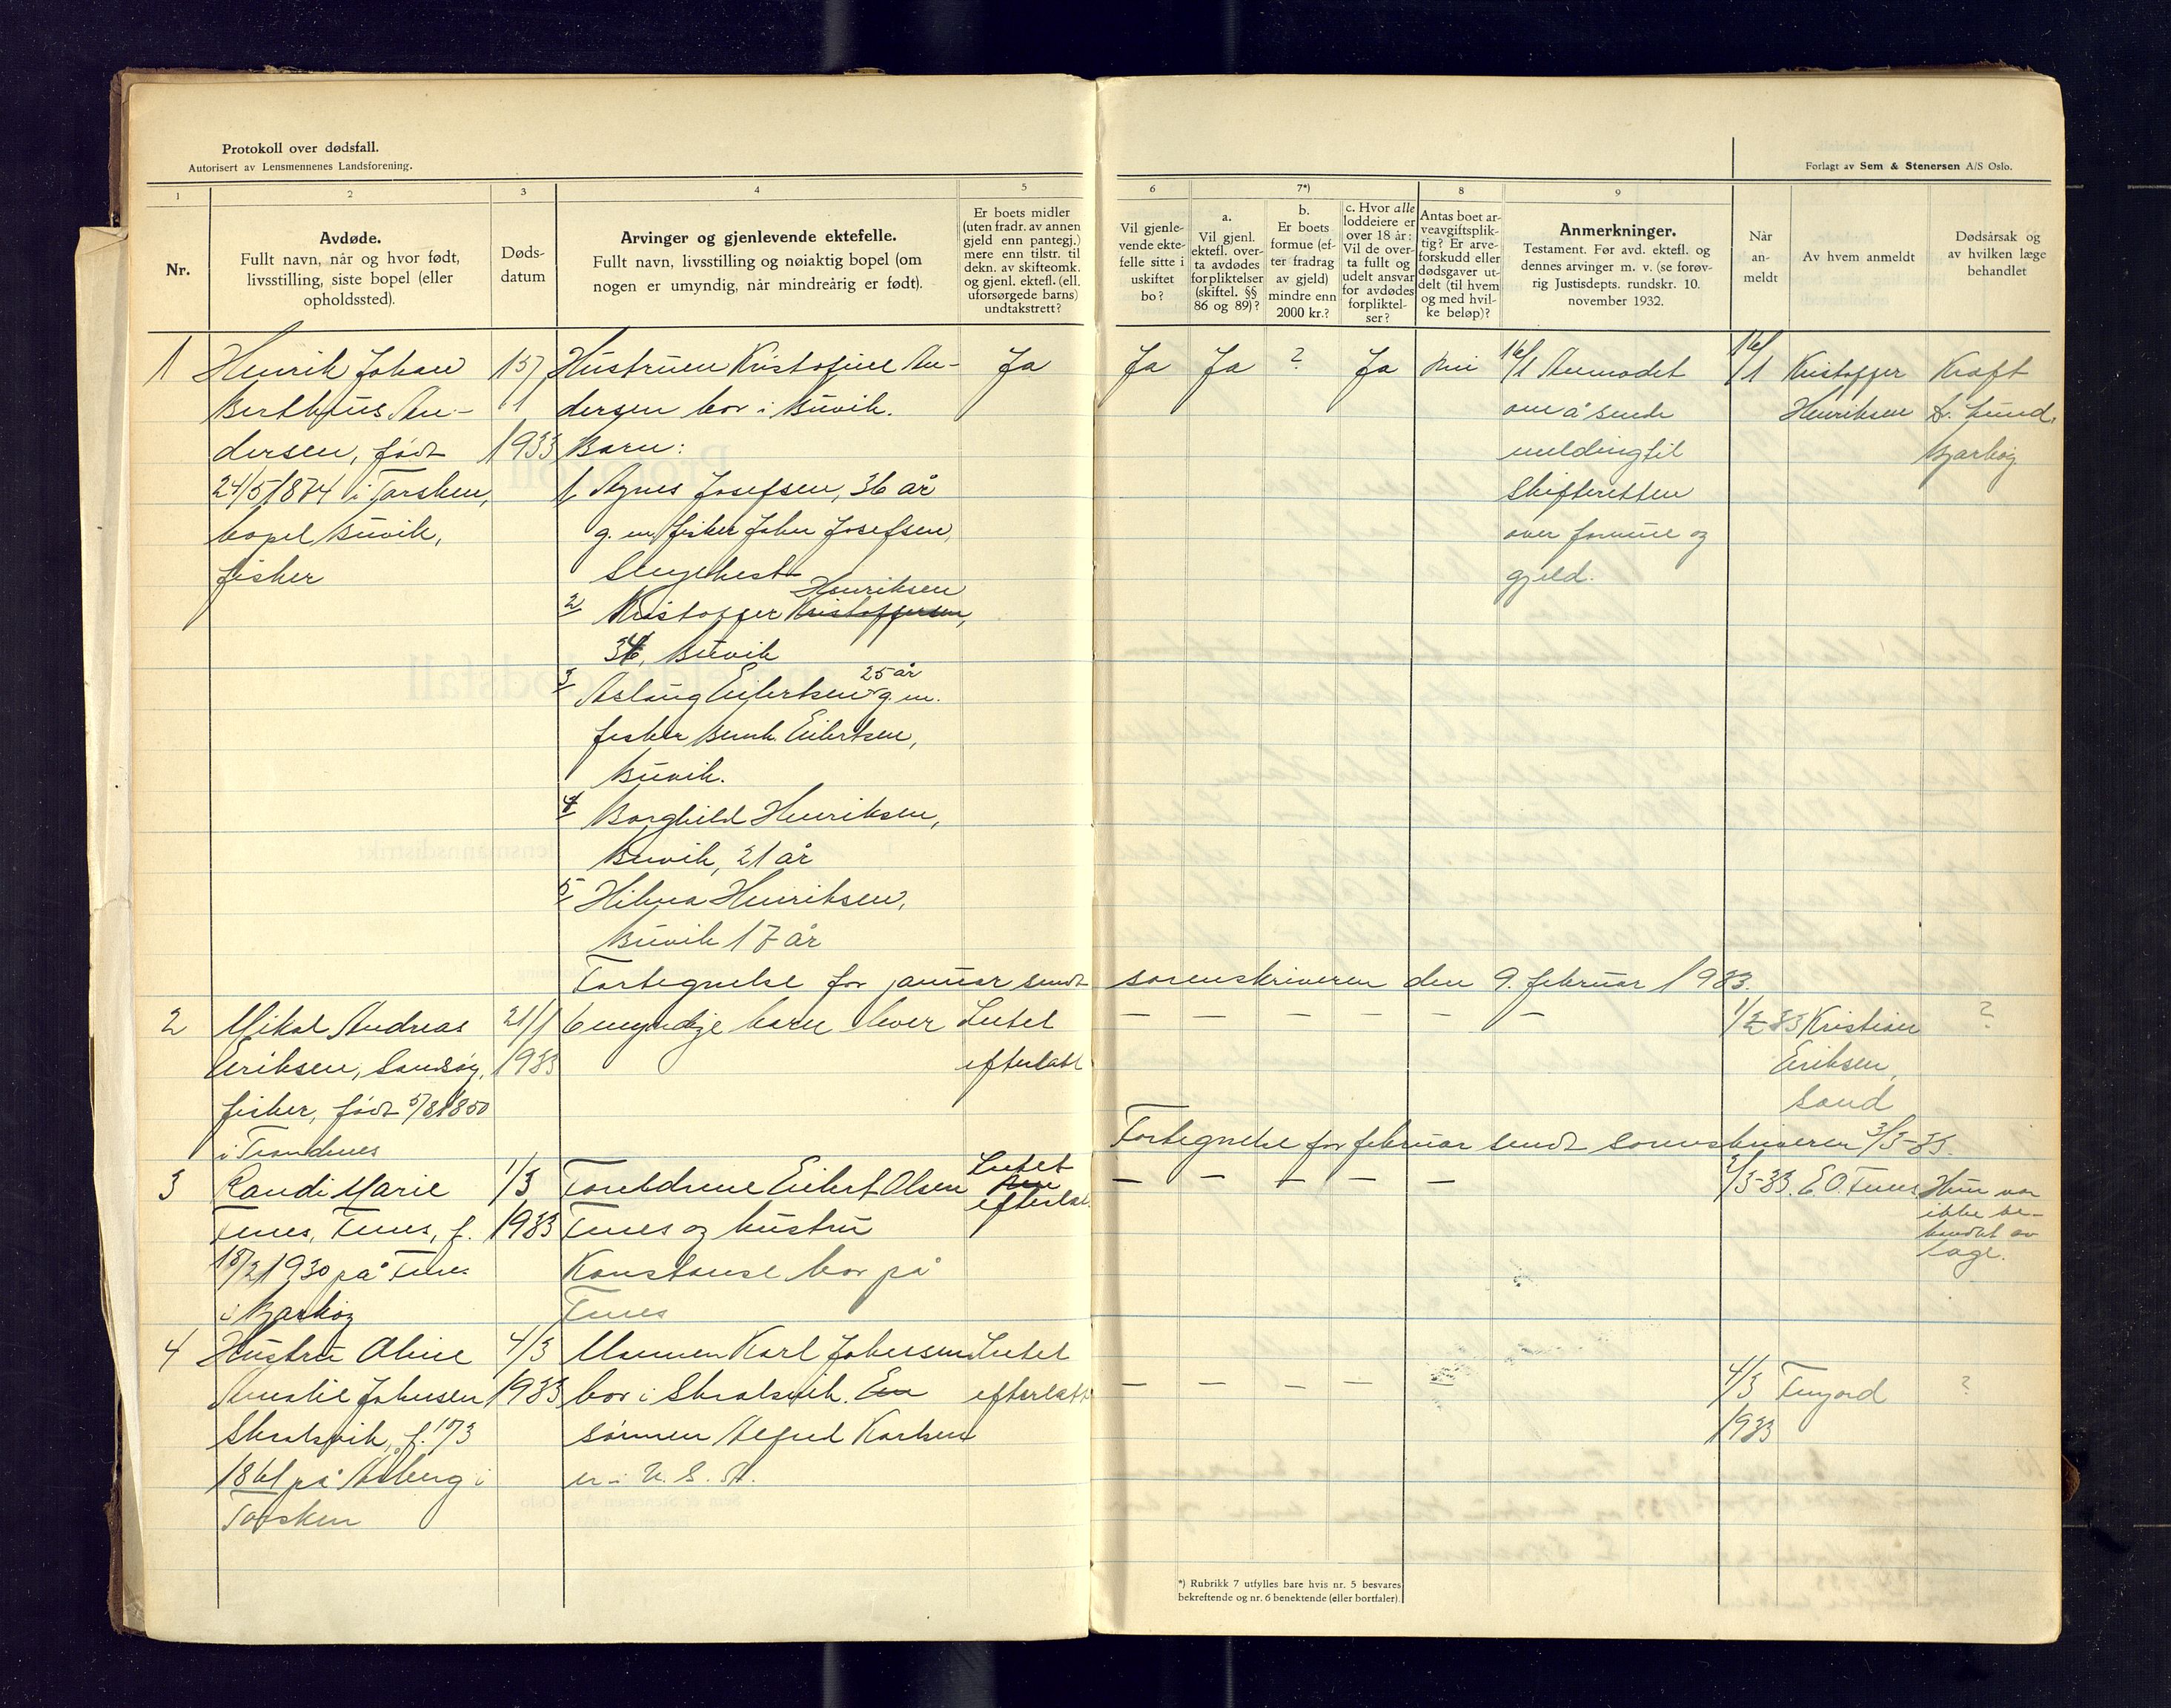 Protokoll over dødsfall.
Autorisert av Lensmennenes Landsforening.
1
2
3
4
5
Nr.
Avdøde.
Fullt navn, når og hvor født,
livsstilling, siste bopel (eller
opholdssted).
Døds-
datum
Arvinger og gjenlevende ektefelle.
Fullt navn, livsstilling og nøiaktig bopel (om
nogen er umyndig, når mindreårig er født).
Er boets midler
(uten fradr. av annen
gjeld enn pantegj.)
mere enn tilstr. til
dekn. av skifteomk.
og gjenl. ektefl. (ell.
uforsørgede barns)
undtakstrett?
1
Henrik Johan
Bertheus An-
dersen, født
24/5 1874 i Torsken,
bopel Buvik,
fisker
15/
1
1933
Hustruen Kristofine An-
dersen bor i Buvik.
Barn:
1 Agnes Josefsen, 36 år
g. m. fisker John Josefsen,
Slygehest
Henriksen
2 Kristoffer Kristoffersen,
34, Buvik
25 år
3 Aslaug Eilertsen g. m.
fisker Bernh. Eilertsen,
Buvik.
4 Borghild Henriksen,
Buvik, 21 år
5 Hilma Henriksen,
Buvik 17 år
Ja
Fortegnelse for januar sendt sorenskriveren den 9. februar 1933.
2
Mikal Andreas
Eriksen, Sandsøy,
fisker, født 5/8 1850
i Trondenes
21/1
1933
6 myndige barn lever
Lutet
efterlatt
3
Randi Marie
Tenes, Tenes, f.
18/2 1930 på Tenes
i Bjarkøy
1/3
1933
Foreldrene Eilert Olsen
Tenes og hustru
Konstanse bor på
Tenes
Lutet
efterlat.
4
Hustru Oline
Amalie Johnsen
Skrolsvik, f. 10/3
1861 på Åsberg i
Torsken
4/3
1933
Mannen Karl Johnsen
bor i Skrolsvik. En
sønnen Alfred Karlsen
er i U. S. A.
Lutet
efterlatt
Forlagt av Sem & Stenersen A/S Oslo.
6
7*)
8
9
Vil gjenle-
vende ekte-
felle sitte i
uskiftet
bo?
a.
Vil gjenl.
ektefl. over-
ta avdødes
forpliktelser
(skiftel. §§
86 og 89)?
b.
Er boets
formue (ef-
ter fradrag
av gjeld)
mindre enn
2000 kr.?
c. Hvor alle
loddeiere er
over 18 år:
Vil de over-
ta fullt og
udelt ansvar
for avdødes
forpliktel-
ser?
Antas boet ar-
veavgiftsplik-
tig? Er arve-
forskudd eller
dødsgaver ut-
delt (til hvem
og med hvil-
ke beløp)?
Anmerkninger.
Testament. Før avd. ektefl. og
dennes arvinger m. v. (se forøv-
rig Justisdepts. rundskr. 10.
november 1932.
Når
an-
meldt
Av hvem anmeldt
Dødsårsak og
av hvilken læge
behandlet
Ja
Ja
?
Ja
Nei
16/1 Anmodet
om å sende
melding til
Skifteretten
over formue og
gjeld.
16/1
Kristoffer
Henriksen
Kræft
Dr. Lund,
Bjarkøy
— — — — — — —
1/2 33
Kristian
Eriksen,
Sand
?
Fortegnelse for februar sendt sorenskriveren 3/3-33.
— — — — —
2/3-33.
E. O. Tenes
Hun var
ikke be-
handlet av
læge.
— — — — —
4/3
1933
Tenfjord
?
*) Rubrikk 7 utfylles bare hvis nr. 5 besvares
bekreftende og nr. 6 benektende (eller bortfaler).